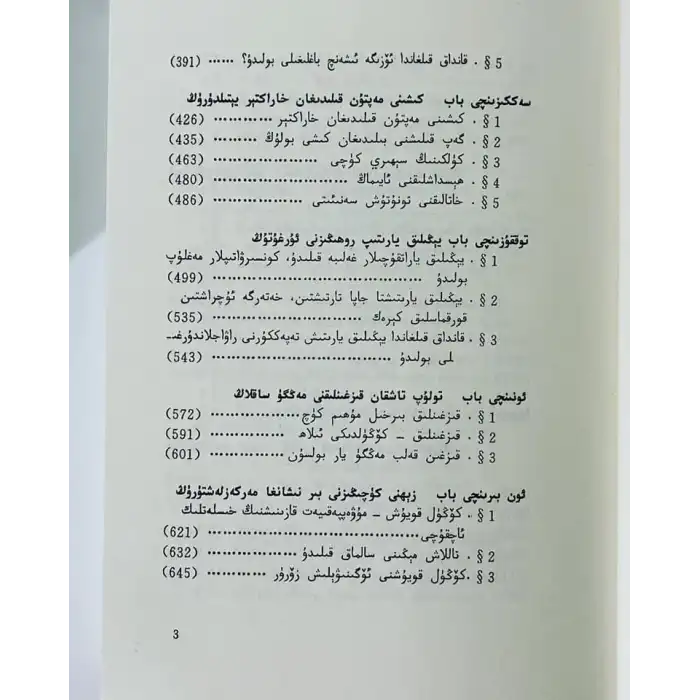 5 § . قانداق قىلغاندا ئۆزىگە ئىشەنچ باغلىغىلى بولىدۇ؟ ...... (391)
سەككىزىنچى باب كىشىنى مەپتۇن قىلىدىغان خاراكتېر يېتىلدۈرۈڭ
1 § . كىشىنى مەپتۇن قىلىدىغان خاراكتېر ............ (426)
2 § . گەپ قىلىشنى بىلىدىغان كىشى بولۇڭ ......... (435)
3 § . كۈلكىنىڭ سېھىرىي كۈچى .................... (463)
4 § . ھېسداشلىقنى ئايىماڭ ........................ (480)
5 § . خاتالىقنى تونۇتۇش سەنئىتى .................. (486)
توققۇزىنچى باب يېڭىلىق يارىتىپ روھىڭىزنى ئۇرغۇتۇڭ
1 § . يېڭىلىق ياراتقۇچىلار غەلىبە قىلىدۇ، كونسېرۋاتىپلار مەغلۇپ
بولىدۇ .................................... (499)
2 § . يېڭىلىق يارىتىشتا جاپا تارتىشتىن، خەتەرگە ئۇچراشتىن
قورقماسلىق كېرەك .............................. (535)
3 § . قانداق قىلغاندا يېڭىلىق يارىتىش تەپەككۇرنى راۋاجلاندۇرغى‍ـ
لى بولىدۇ .................................... (543)
ئونىنچى باب تولۇپ تاشقان قىزغىنلىقنى مەڭگۈ ساقلاڭ
1 § . قىزغىنلىق بىرخىل مۇھىم كۈچ .................. (572)
2 § . قىزغىنلىق – كۆڭۈلدىكى ئىلاھ ............... (591)
3 § . قىزغىن قەلب مەڭگۈ يار بولسۇن ............... (601)
ئون بىرىنچى باب زېھنى كۈچىڭىزنى بىر نىشانغا مەركەزلەشتۈرۈڭ
1 § . كۆڭۈل قويۇش – مۇۋەپپەقىيەت قازىنىشنىڭ خىسلەتلىك
ئاچقۇچى .......................................... (621)
2 § . تاللاش مېڭىنى سالماق قىلىدۇ .................. (632)
3 § .كۆڭۈل قويۇشنى ئۆگىنىۋېلىش زۆرۈر ............ (645)
3